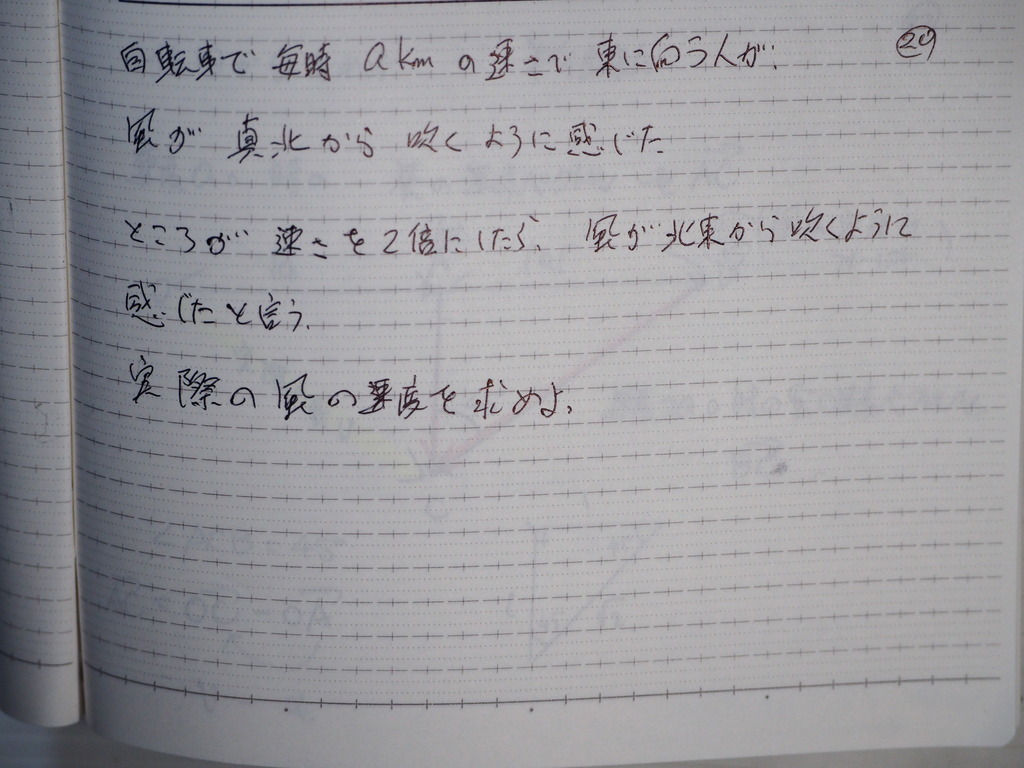 自転車で 毎時 a km の速さで 東に向う人が、 29
風が 真北から 吹くように感じた
ところが 速さを2倍にしたら、 風が北東から吹くように
感じたと言う。
実際の風の速度を求めよ。